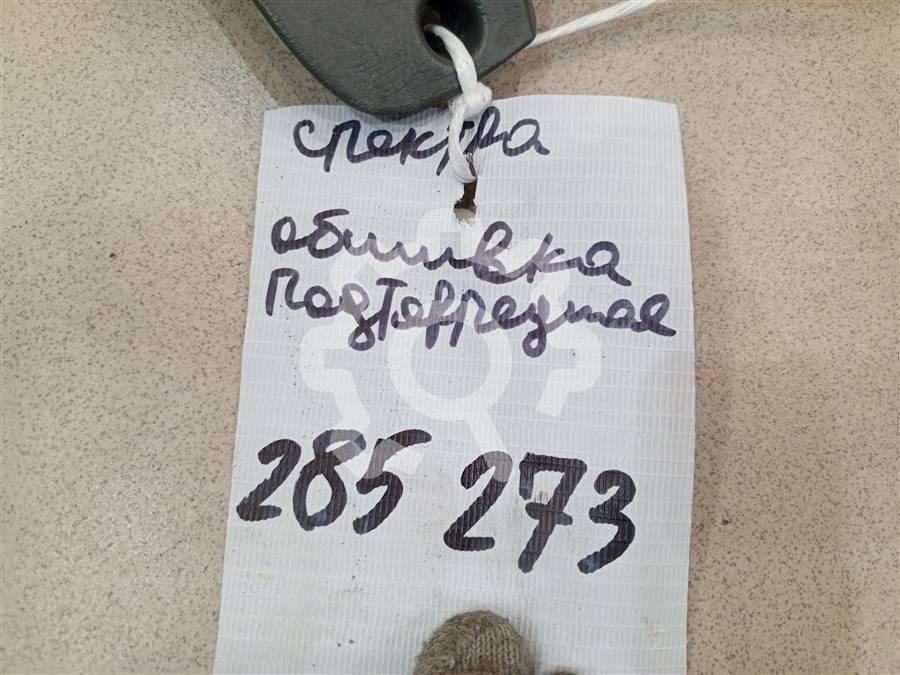 спектра
обшивка
подторпедная
285 273